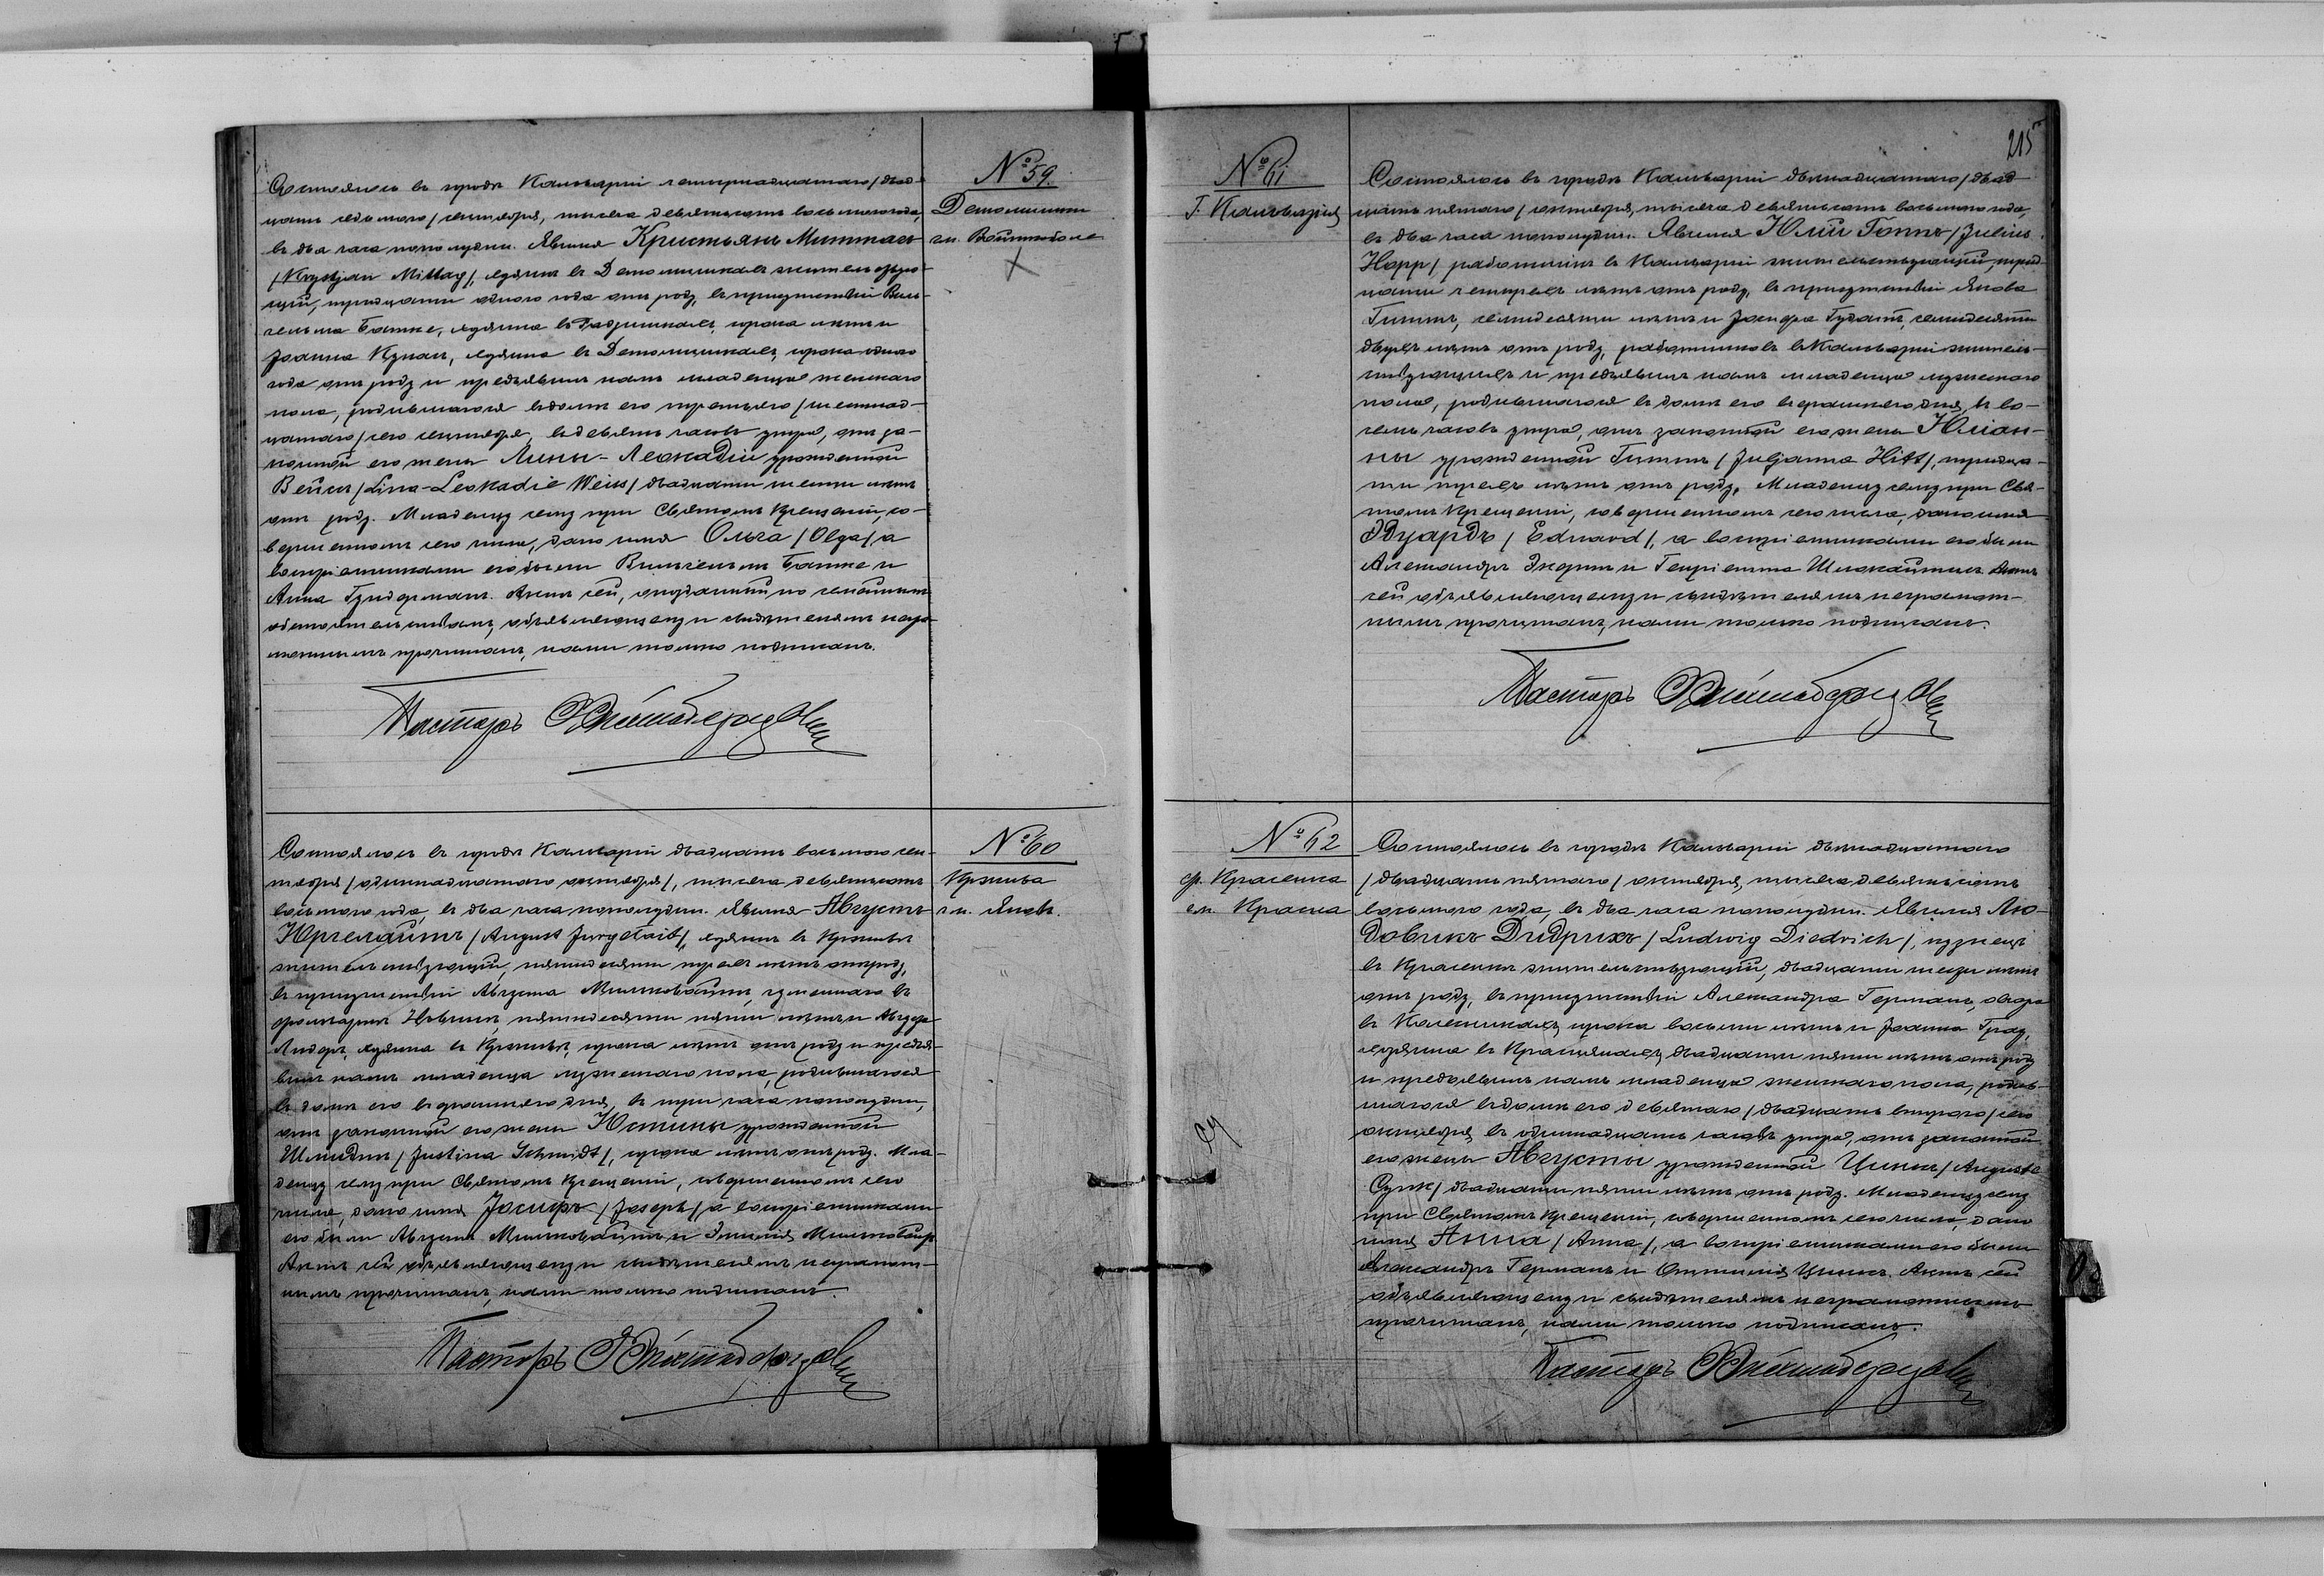 № 59.
Детомишки
гм. Войткоболе
Состоялось въ городѣ Кальваріи четырнадцатаго /двад-
цать седьмого/ сентября, тысяча девятьсотъ восьмого года,
въ два часа пополудни. Явился Кристьянъ Миттагъ
/Krystjan Mittag/, въ жительствую-
щій, тридцати одного года отъ роду, въ присутствіи Виль-
гельма Батке, сорока лѣтъ и
Іоанна въ сорока одного
года отъ роду и предъявилъ намъ младенца женскаго
пола, родившагося въ домѣ его третьяго /шестнад-
цатаго/ сего сентября, въ девять часовъ утра, отъ за-
конной его жены Лины-Леокадіи урожденной
Вейсъ /Lina-Leokadie Weiss/ двадцати шести лѣтъ
отъ роду. Младенцу сему при Святомъ Крещеніи, со-
вершенномъ сего числа, дано имя Ольга /Olga/, а
воспріемниками его были Вильгельмъ Батке и
Анна Гундерманъ. Актъ сей, опоздавшій по семейнымъ
обстоятельствамъ, объявляющему и свидѣтелямъ негра-
мотнымъ прочитанъ, нами только подписанъ.
Пасторъ
№ 60
Кржива
гм. Яновъ.
Состоялось въ городѣ Кальваріи двадцать восьмого сен-
тября /одиннадцатаго октября/, тысяча девятьсотъ
восьмого года, въ два часа пополудни. Явился Августъ
Юргелайтъ /August Jurgelait/, въ
жительствующій, пятидесяти трехъ лѣтъ отъ роду,
въ присутствіи Августа въ
пятидесяти пяти лѣтъ и
въ сорока лѣтъ отъ роду и предъя-
вилъ намъ младенца мужескаго пола, родившагося
въ домѣ его вчерашняго дня, въ три часа пополудни,
отъ законной его жены Юстины урожденной
Шмидтъ /Justina Schmidt/, сорока лѣтъ отъ роду. Мла-
денцу сему при Святомъ Крещеніи, совершенномъ сего
числа, дано имя Іосифъ /Joseph/, а воспріемниками
его были Августъ и
Актъ сей объявляющему и свидѣтелямъ неграмот-
нымъ прочитанъ, нами только подписанъ.
Пасторъ
215
№ 61
Г. Кальварія
Состоялось въ городѣ Кальваріи двѣнадцатаго /двад-
цать пятаго/ октября, тысяча девятьсотъ восьмого года,
въ два часа пополудни. Явился Юлій Гоппъ /Julius
Hopp/ работникъ въ Кальваріи жительствующій, трид-
цати четырехъ лѣтъ отъ роду, въ присутствіи Якова
Гиттъ, семидесяти лѣтъ и Іосифа Гудатъ, семидесяти
двухъ лѣтъ отъ роду, работниковъ въ Кальваріи житель-
ствующихъ и предъявилъ намъ младенца мужескаго
пола, родившагося въ домѣ его вчерашняго дня, въ во-
семь часовъ утра, отъ законной его жены Юліан-
ны урожденной Гиттъ /Juljanna Hitt/, тридца-
ти трехъ лѣтъ отъ роду. Младенцу сему при Свя-
томъ Крещеніи, совершенномъ сего числа, дано имя
Эдуардъ /Eduard/, а воспріемниками его были
Александръ и Генріетта Актъ
сей объявляющему и свидѣтелямъ неграмот-
нымъ прочитанъ, нами только подписанъ.
Пасторъ
№ 62
ф. Красенка
гм. Красна
Состоялось въ городѣ Кальваріи двѣнадцатаго
/двадцать пятаго/ октября, тысяча девятьсотъ
восьмого года, въ два часа пополудни. Явился Лю-
довикъ Дидрихъ /Ludwig Diedrich/, кузнецъ
въ Красенкѣ жительствующій, двадцати шести лѣтъ
отъ роду, въ присутствіи Александра Германъ,
въ сорока восьми лѣтъ и Іоанна
въ двадцати пяти лѣтъ отъ роду
и предъявилъ намъ младенца женскаго пола, родив-
шагося въ домѣ его девятаго /двадцать второго/ сего
октября, въ одиннадцать часовъ утра, отъ законной
его жены Августы урожденной Цинкъ /Auguste
Cynk/ двадцати пяти лѣтъ отъ роду. Младенцу сему
при Святомъ Крещеніи, совершенномъ сего числа, дано
имя Анна /Anna/, а воспріемниками его были
Александръ Германъ и Цинкъ. Актъ сей
объявляющему и свидѣтелямъ неграмотнымъ
прочитанъ, нами только подписанъ.
Пасторъ